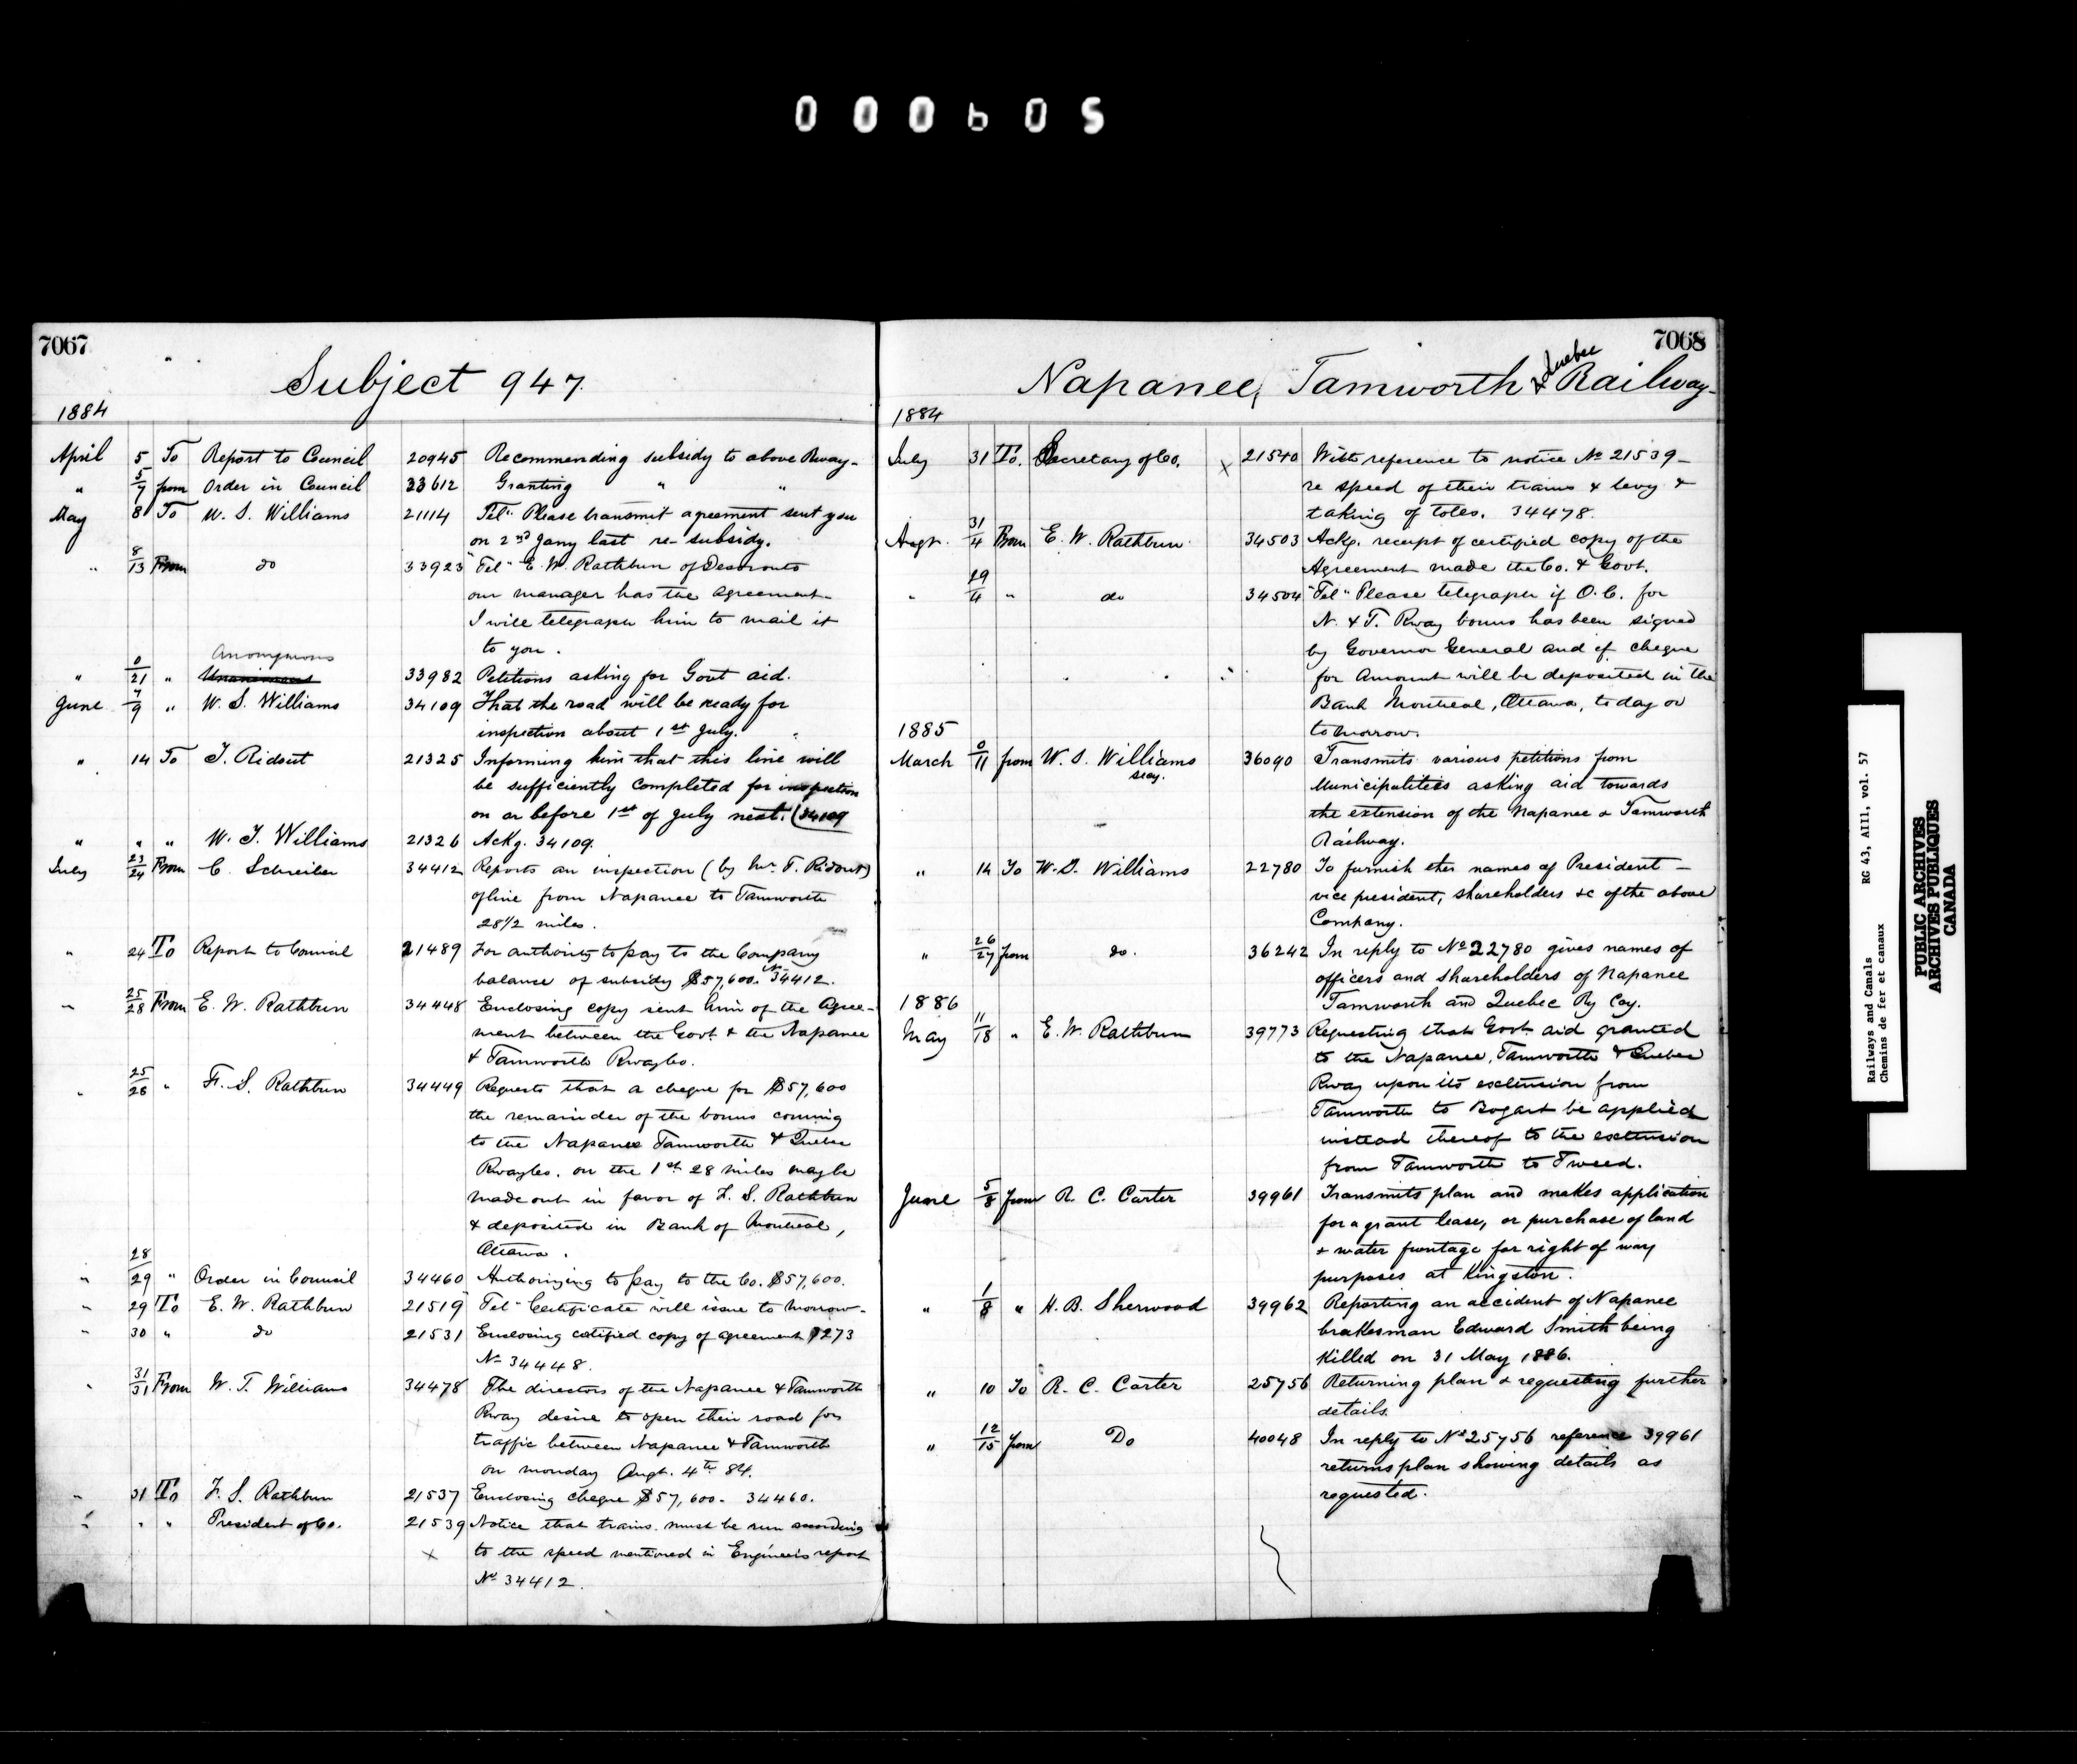 000605
7067
Subject 947
1884
April 5 To Report to Council 20945 Recommending subsidy to above Rway-
" 5/7 from Order in Council 33612 Granting " "
May 8 To W. S. Williams 21114 Tel" Please transmit agreement sent you
on 2nd Jany last re- subsidy.
" 8/13 From do 33923 "Tel" E. W. Rathbun of Deseronto
our manager has the agreement-
I will telegraph him to mail it
to you.
Anonymous
" 0/21 " 33982 Petitions asking for Govt aid.
June 7/9 " W. S. Williams 34109 That the road will be ready for
inspection about 1st July.
" 14 To T. Ridout 21325 Informing him that this line will
be sufficiently completed for inspection
on or before 1st of July next. (34109
" " " W. T. Williams 21326 Ackg. 34109.
July 23/24 From C. Schreiber 34412 Reports an inspection (by Mr. T. Ridout)
of line from Napanee to Tamworth
28 1/2 miles.
" 24 To Report to Council 21489 For authority to pay to the Company
balance of subsidy $57,600. No 34412.
" 25/28 From E. W. Rathbun 34448 Enclosing copy sent him of the Agree-
ment between the Govt. & the Napanee
& Tamworth Rway Co.
" 25/28 " F. S. Rathbun 34449 Requests that a cheque for $57,600
the remainder of the bonus coming
to the Napanee Tamworth & Quebec
Rway Co. on the 1st 28 miles may be
made out in favor of F. S. Rathbun
& deposited in Bank of Montreal,
Ottawa.
" 28/29 " Order in Council 34460 Authorizing to pay to the Co. $57,600.
" 29 To E. W. Rathbun 21519 "Tel" Certificate will issue to morrow-
" 30 " do 21531 Enclosing certified copy of agreement 7273
No 34448.
" 31/31 From W. T. Williams 34478 The directors of the Napanee & Tamworth
Rway desire to open their road for
traffic between Napanee & Tamworth
on monday Augt. 4th 84.
" 31 To F. S. Rathbun 21537 Enclosing cheque $57,600. 34460.
" " " President of Co. 21539 Notice that trains must be run according
x to the speed mentioned in Engineer's report
No 34412.
7068
Napanee, Tamworth & Quebec Railway-
1884
July 31 To. Secretary of Co. x 21540 With reference to notice No 21539-
re speed of their trains & levy &
taking of toles. 34478.
Augt. 31/4 From E. W. Rathbun 34503 Ackg. receipt of certified copy of the
Agreement made the Co. & Govt.
" 29/4 " do 34504 "Tel" Please telegraph if O. C. for
N. & T. Rway bonus has been signed
by Governor General and if cheque
for Amount will be deposited in the
Bank Montreal, Ottawa, to day or
tomorrow.
1885
March 0/11 from W. S. Williams 36090 Transmits various petitions from
secy.
Municipalities asking aid towards
the extension of the Napanee & Tamworth
Railway.
" 14 To W. S. Williams 22780 To furnish the names of President-
vice president, shareholders &c of the above
Company.
" 26/27 from do. 36242 In reply to No 22780 gives names of
officers and shareholders of Napanee
Tamworth and Quebec Ry Coy.
1886
May 11/18 " E. W. Rathbun 39773 Requesting that Govt. aid granted
to the Napanee, Tamworth & Quebec
Rway upon its extension from
Tamworth to Bogart be applied
instead thereof to the extension
from Tamworth to Tweed.
June 5/8 from R. C. Carter 39961 Transmits plan and makes application
for a grant lease, or purchase of land
& water frontage for right of way
purposes at Kingston.
" 1/8 " H. B. Sherwood 39962 Reporting an accident of Napanee
brakesman Edward Smith being
killed on 31 May 1886.
" 10 To R. C. Carter 25756 Returning plan & requesting further
details.
" 12/15 from Do 40048 In reply to No 25756 reference 39961
returns plan showing details as
requested.
Railways and Canals RG 43, AIII, vol. 57
Chemins de fer et canaux
PUBLIC ARCHIVES
ARCHIVES PUBLIQUES
CANADA